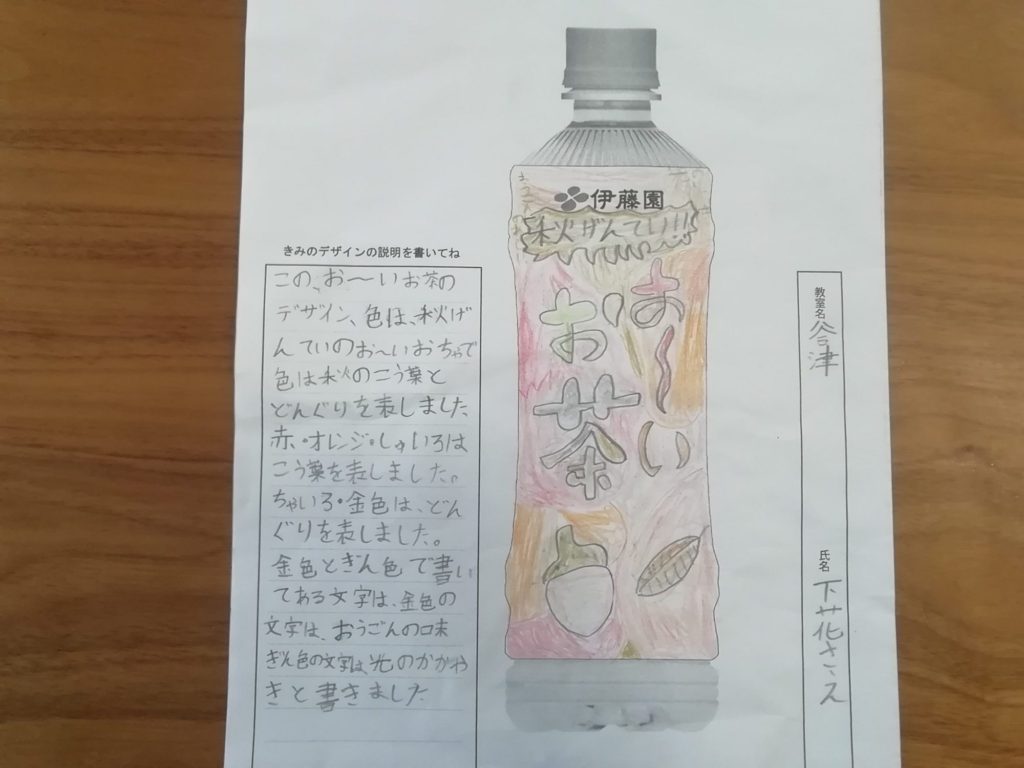 きみのデザインの説明を書いてね
この、お〜いお茶の
デザイン、色は、秋げ
んていのお〜いおちゃで
色は秋のこう葉と
どんぐりを表しました
赤、・オレンジ・しゅいろは
こう葉を表しました。
ちゃいろ・金色は、どん
ぐりを表しました。
金色とぎん色で書い
てある文字は、金色の
文字は、おうごんの味
ぎん色の文字は、光のかがや
きと書きました
伊藤園
秋げんてい!!
お〜い
お茶
教室名
谷津
氏名
下花さえ